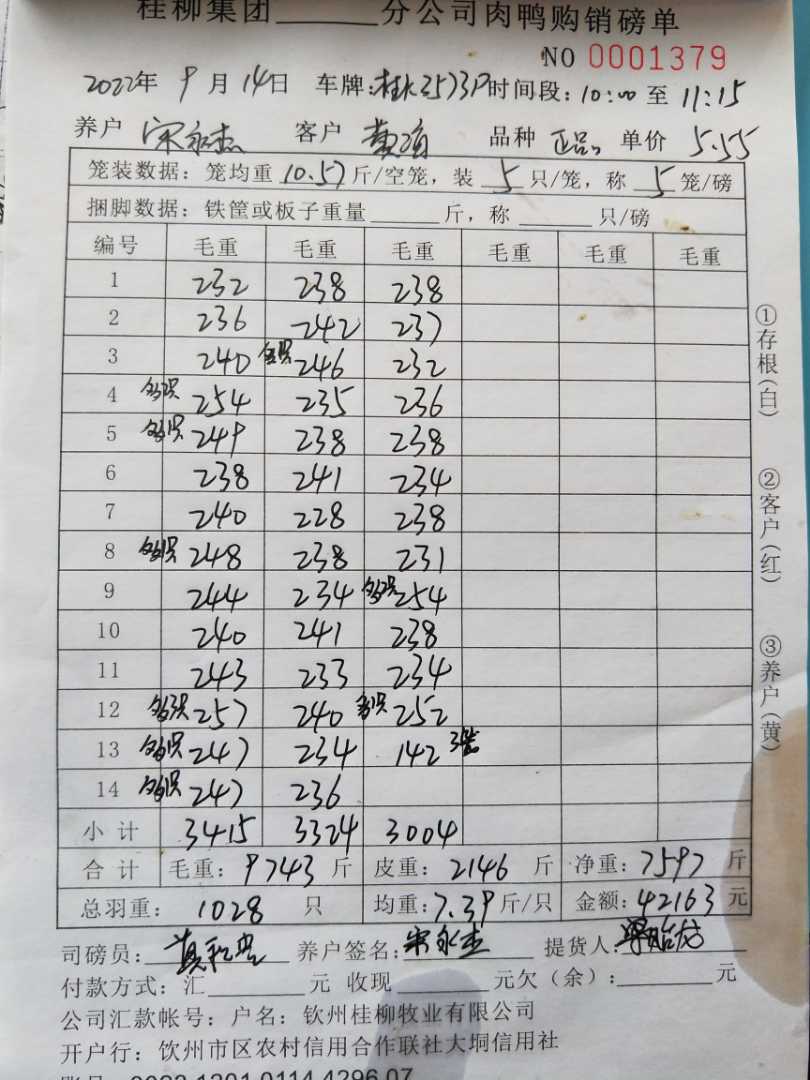 桂柳集团______分公司肉鸭购销磅单
NO 0001379
2022年 9月14日 车牌:桂 时间段:10:00至11:15
养户 宋永杰 客户 品种 正品 单价 5.55
笼装数据:笼均重 10.57 斤/空笼,装 5 只/笼,称 5 笼/磅
捆脚数据:铁筐或板子重量______斤,称______只/磅
编号 毛重 毛重 毛重 毛重 毛重 毛重
1 232 238 238
2 236 242 237
3 240 246 232
4 254 235 236
5 249 238 238
6 238 241 234
7 240 228 238
8 248 238 231
9 244 234 254
10 240 241 238
11 243 233 234
12 257 240 252
13 247 234 142
14 247 236
小计 3415 3324 3004
合计 毛重:9743 斤 皮重:2146 斤 净重:7597 斤
总羽重:1028 只 均重:7.39 斤/只 金额:42163 元
司磅员: 养户签名:宋永杰 提货人:
付款方式:汇______元 收现______元欠(余):______元
公司汇款帐号:户名:钦州桂柳牧业有限公司
开户行:钦州市区农村信用合作联社大垌信用社
①存根(白)
②客户(红)
③养户(黄)